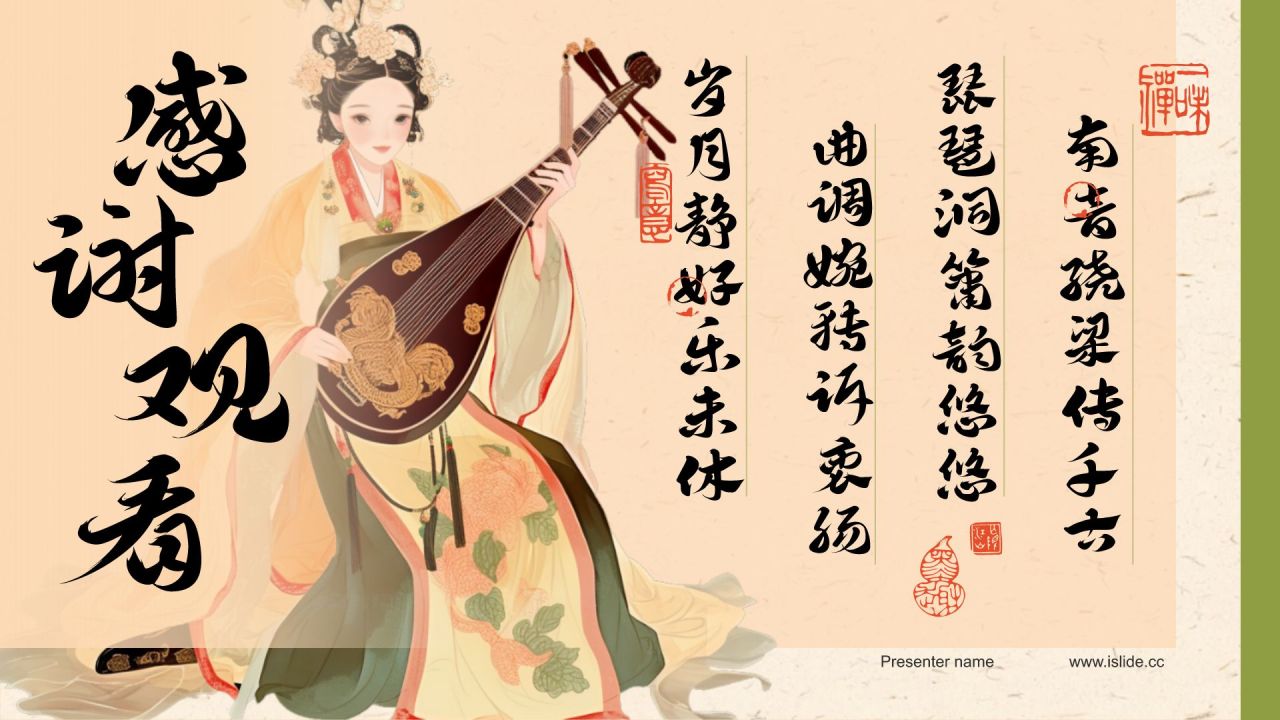 感谢观看
南音绕梁传千古
琵琶洞箫韵悠悠
曲调婉转诉衷肠
岁月静好乐未休
一味禅
Presenter name
www.islide.cc